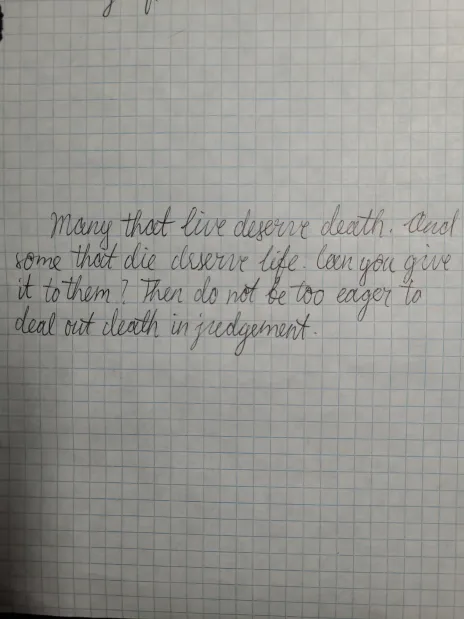 Many that live deserve death. And
some that die deserve life. Can you give
it to them? Then do not be too eager to
deal out death in judgement.